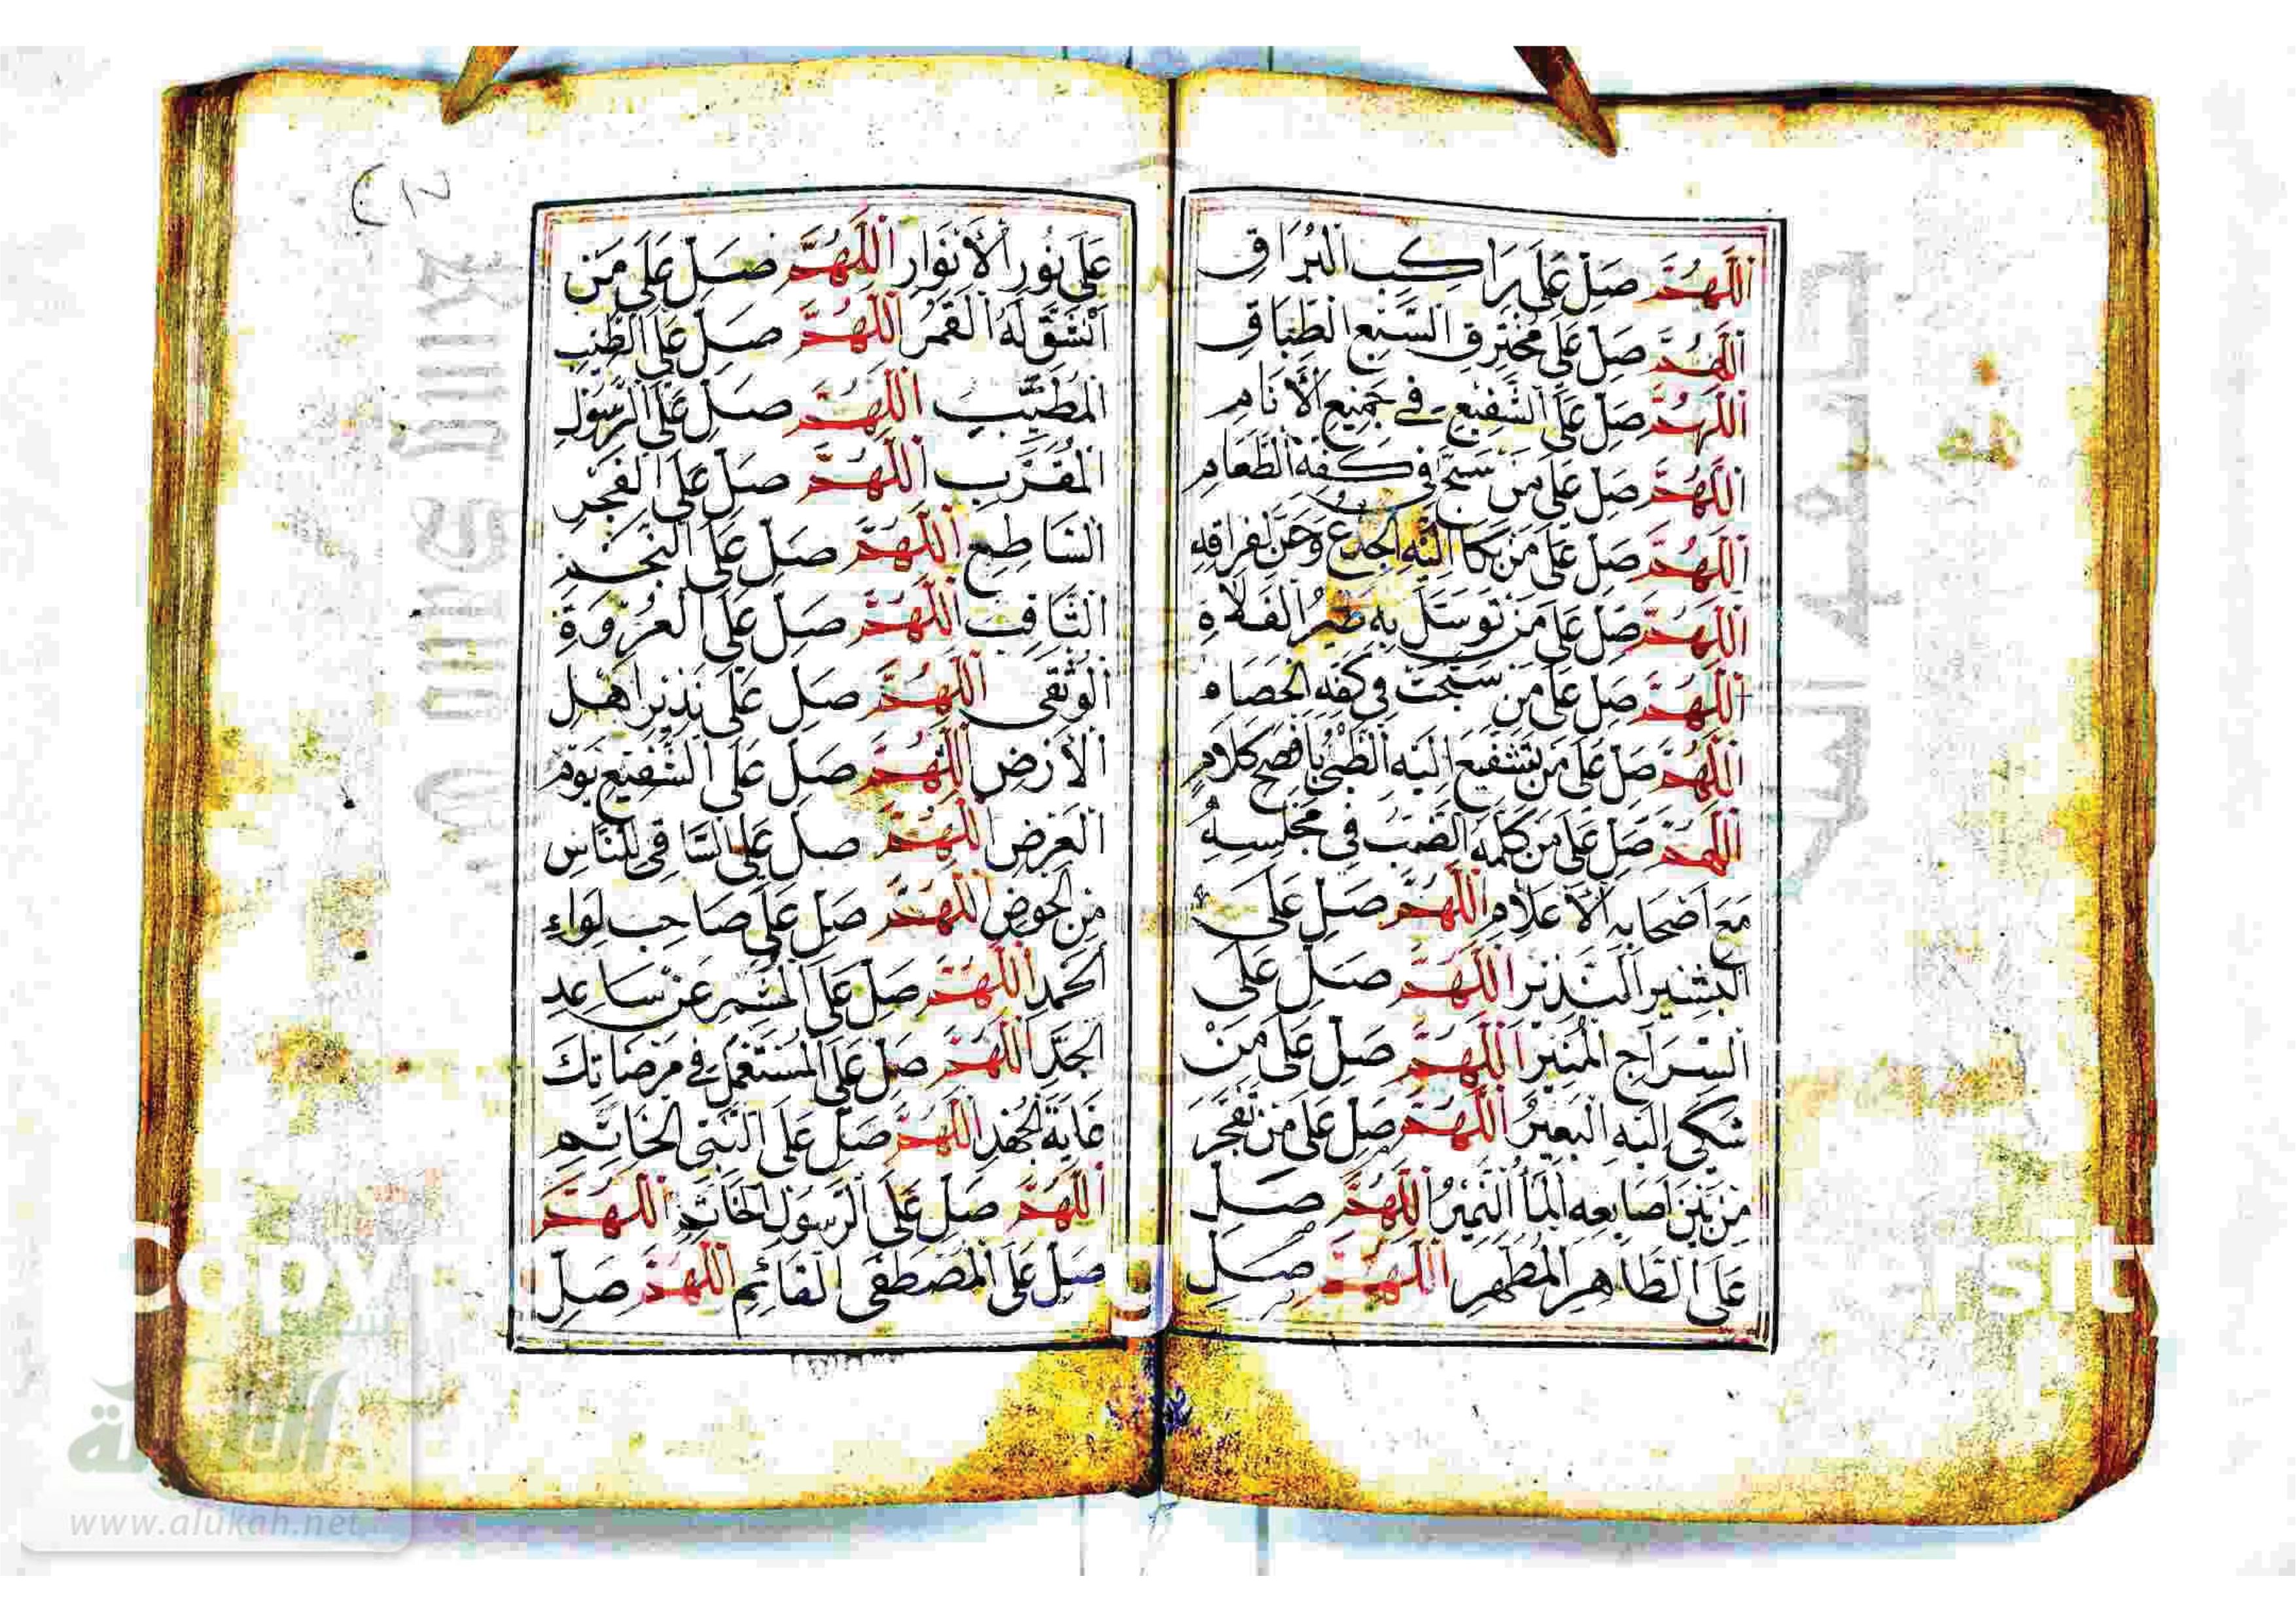 اَللّٰهُمَّ صَلِّ عَلَى رَاكِبِ الْبُرَاقِ
اَللّٰهُمَّ صَلِّ عَلَى مُخْتَرِقِ السَّبْعِ الطِّبَاقِ
اَللّٰهُمَّ صَلِّ عَلَى الشَّفِيعِ فِي جَمِيعِ الْأَنَامِ
اَللّٰهُمَّ صَلِّ عَلَى مَنْ سَبَّحَ فِي كَفِّهِ الطَّعَامِ
اَللّٰهُمَّ صَلِّ عَلَى مَنْ بَكَا اِلَيْهِ الْجِذْعُ وَحَنَّ لِفِرَاقِهِ
اَللّٰهُمَّ صَلِّ عَلَى مَنْ تَوَسَّلَ بِهِ طَيْرُ الْفَلَاةِ
اَللّٰهُمَّ صَلِّ عَلَى مَنْ سَبَّحَتْ فِي كَفِّهِ الْحَصَاه
اَللّٰهُمَّ صَلِّ عَلَى مَنْ تَشَفَّعَ اِلَيْهِ الظَّبْيُ بِاَفْصَحِ كَلَامٍ
اَللّٰهُمَّ صَلِّ عَلَى مَنْ كَلَّمَهُ الضَّبُّ فِي مَجْلِسِهِ
مَعَ اَصْحَابِهِ الْأَعْلَامِ اَللّٰهُمَّ صَلِّ عَلَى
الْبَشِيرِ النَّذِيرِ اَللّٰهُمَّ صَلِّ عَلَى
السِّرَاجِ الْمُنِيرِ اَللّٰهُمَّ صَلِّ عَلَى مَنْ
شَكَى اِلَيْهِ الْبَعِيرُ اَللّٰهُمَّ صَلِّ عَلَى مَنْ تَفَجَّرَ
مِنْ بَيْنِ اَصَابِعِهِ الْمَاُ النَّمِيرُ اَللّٰهُمَّ صَلِّ
عَلَى الطَّاهِرِ الْمُطَهَّرِ اَللّٰهُمَّ صَلِّ
عَلَى نُورِ الْأَنْوَارِ اَللّٰهُمَّ صَلِّ عَلَى مَنْ
انْشَقَّ لَهُ الْقَمَرُ اَللّٰهُمَّ صَلِّ عَلَى الطَّيِّبِ
الْمُطَيَّبِ اَللّٰهُمَّ صَلِّ عَلَى الرَّسُولِ
الْمُقَرَّبِ اَللّٰهُمَّ صَلِّ عَلَى الْفَجْرِ
السَّاطِعِ اَللّٰهُمَّ صَلِّ عَلَى النَّجْمِ
الثَّاقِبِ اَللّٰهُمَّ صَلِّ عَلَى الْعُرْوَةِ
الْوُثْقَى اَللّٰهُمَّ صَلِّ عَلَى نَذِيرِ اَهْلِ
الْأَرْضِ اَللّٰهُمَّ صَلِّ عَلَى الشَّفِيعِ يَوْمَ
الْعَرْضِ اَللّٰهُمَّ صَلِّ عَلَى السَّاقِي لِلنَّاسِ
مِنَ الْحَوْضِ اَللّٰهُمَّ صَلِّ عَلَى صَاحِبِ لِوَاءِ
الْحَمْدِ اَللّٰهُمَّ صَلِّ عَلَى الْمُشَمِّرِ عَنْ سَاعِدِ
الْجِدِّ اَللّٰهُمَّ صَلِّ عَلَى الْمُسْتَعْمِلِ فِي مَرْضَاتِكَ
غَايَةَ الْجُهْدِ اَللّٰهُمَّ صَلِّ عَلَى النَّبِيِّ الْخَاتِمِ
اَللّٰهُمَّ صَلِّ عَلَى الرَّسُولِ الْخَاتِمِ اَللّٰهُمَّ
صَلِّ عَلَى الْمُصْطَفَى الْقَائِمِ اَللّٰهُمَّ صَلِّ
الألوكة
www.alukah.net